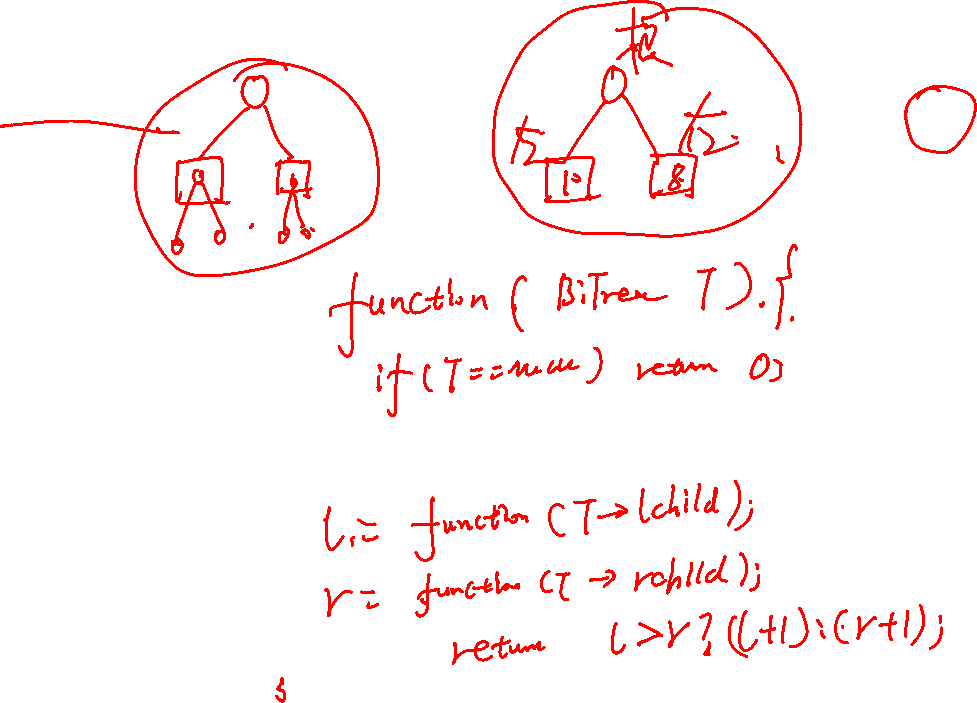 根
左 右
10 8
function ( BiTree T ) {
if ( T == null ) return 0;
l = function ( T → lchild );
r = function ( T → rchild );
return l > r ? (l+1) : (r+1);
}